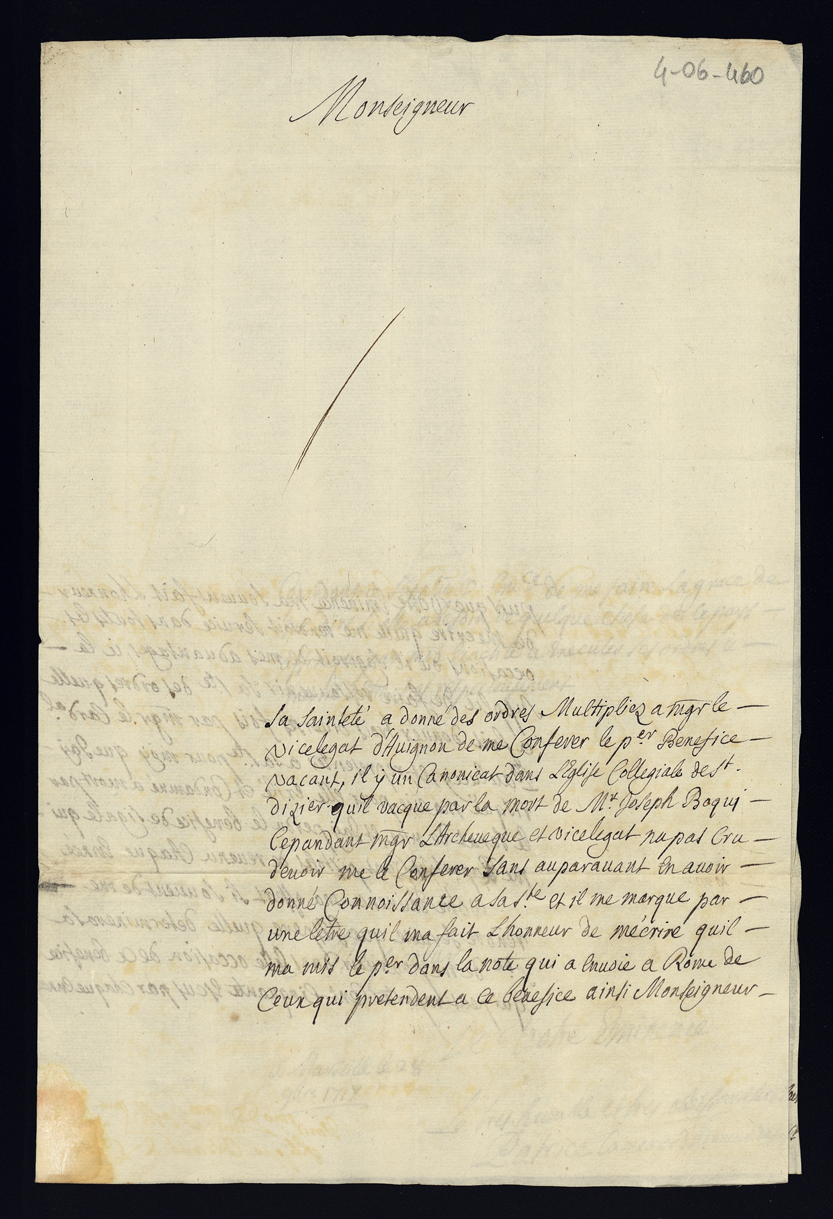 4-06-460
Monseigneur
Sa Sainteté a donné des ordres Multipliez a mgr le
vicelegat d'Auignon de me Conferer le per Benefice
vacant, il y un Canonicat dans L'Eglise Collegiale de st.
dizier quil vacque par la mort de Mr. Joseph Boqui
Cepandant mgr L'Archeueque et vicelegat na pas Cru
deuoir me le Conferer sans auparauant En auoir
donné Connoissance a sa ste et il me marque par
une letre quil ma fait L'honneur de mécrire quil
ma mis le per dans la note qui a Enuoie a Rome de
Ceux qui pretendent a Ce benefice ainsi Monseigneur